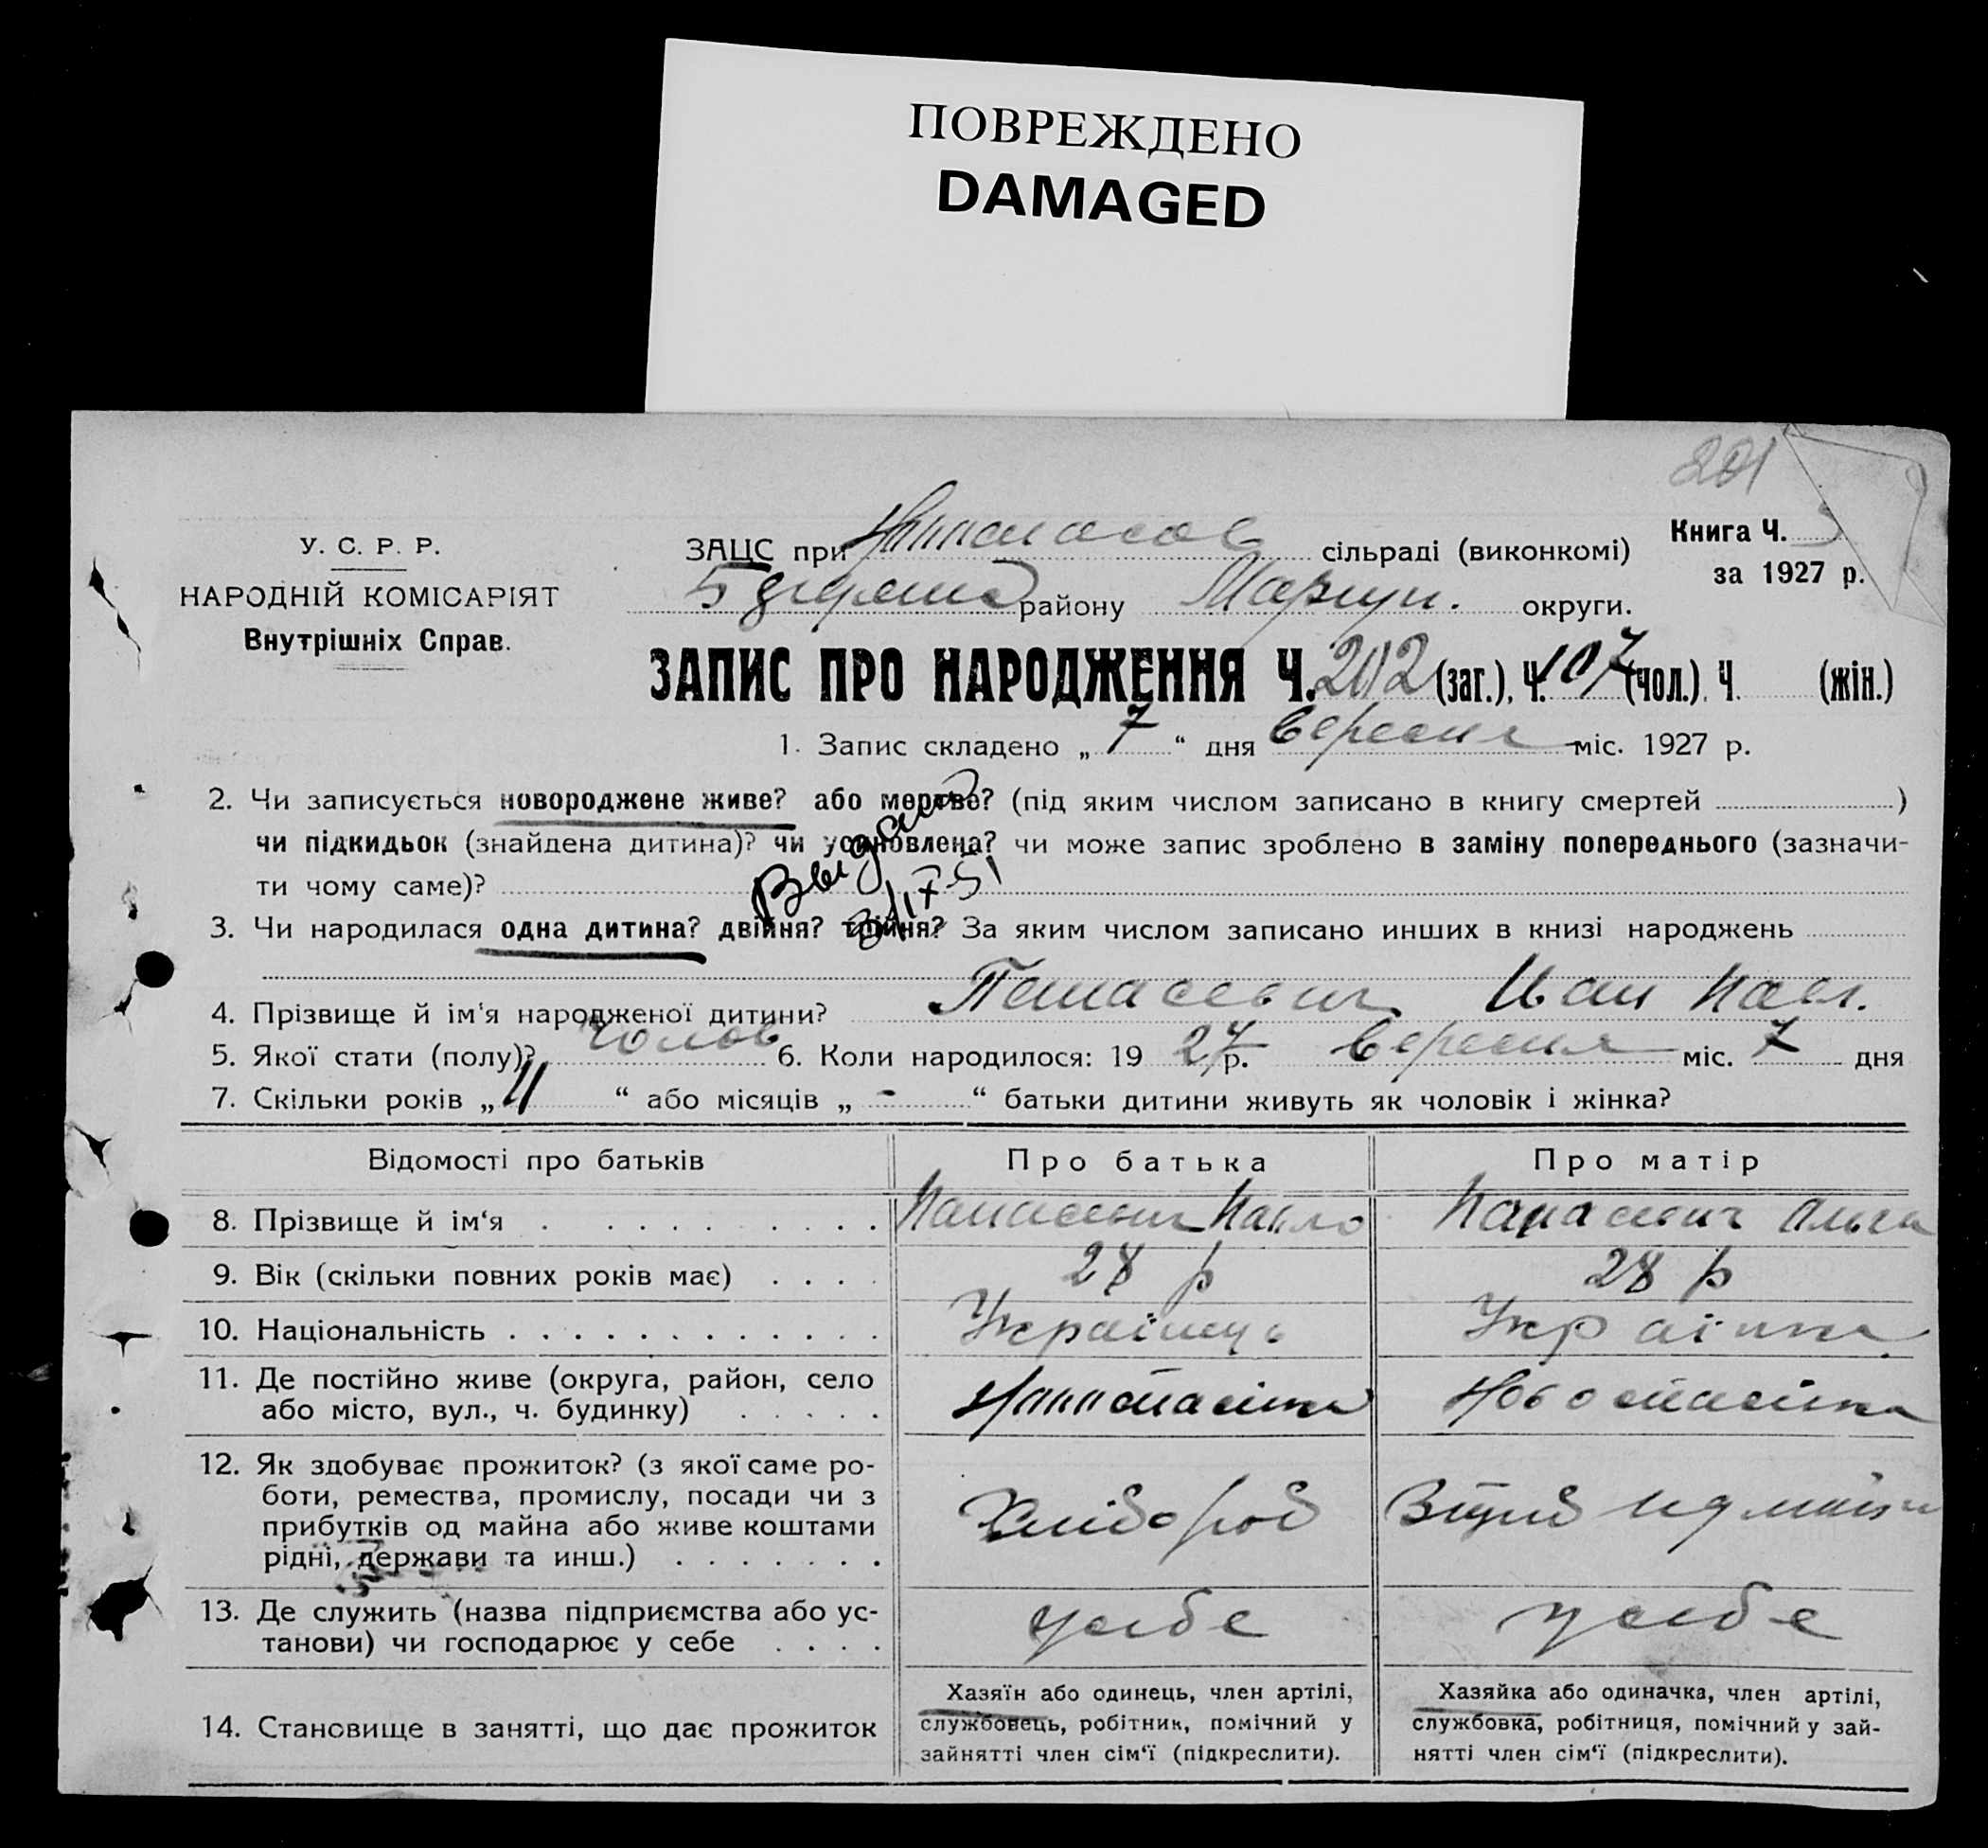 ПОВРЕЖДЕНО
DAMAGED
201
У. С. Р. Р.
НАРОДНІЙ КОМІСАРІЯТ
Внутрішніх Справ.
ЗАЦС при сільраді (виконкомі)
району Маріуп. округи.
Книга Ч.
за 1927 р.
ЗАПИС ПРО НАРОДЖЕННЯ Ч. 202 (заг.), Ч. 107 (чол.), Ч. (жін.)
1. Запис складено „ 7 “ дня вересня міс. 1927 р.
2. Чи записується новороджене живе? або мертве? (під яким числом записано в книгу смертей )
чи підкидьок (знайдена дитина)? чи установлена? чи може запис зроблено в заміну попереднього (зазначи-
ти чому саме)?
Выдано
3. Чи народилася одна дитина? двійня? трійня? За яким числом записано инших в книзі народжень
4. Прізвище й ім‘я народженої дитини? Панасевич Иван Павл.
5. Якої стати (полу)? чолов 6. Коли народилося: 19 27 р. вересня міс. 7 дня
7. Скільки років „ “ або місяців „ - “ батьки дитини живуть як чоловік і жінка?
Відомості про батьків Про батька Про матір
8. Прізвище й ім‘я Панасевич Павло Панасевич Ольга
9. Вік (скільки повних років має) 28 р 28 р
10. Національність Українець Українка
11. Де постійно живе (округа, район, село
або місто, вул., ч. будинку)
12. Як здобуває прожиток? (з якої саме ро-
боти, ремества, промислу, посади чи з
прибутків од майна або живе коштами
рідні, держави та инш.) Хлібороб
13. Де служить (назва підприємства або ус-
танови) чи господарює у себе у себе у себе
14. Становище в занятті, що дає прожиток
Хазяїн або одинець, член артілі,
службовець, робітник, помічний у
зайнятті член сім‘ї (підкреслити).
Хазяйка або одиначка, член артілі,
службовка, робітниця, помічний у зай-
нятті член сім‘ї (підкреслити).